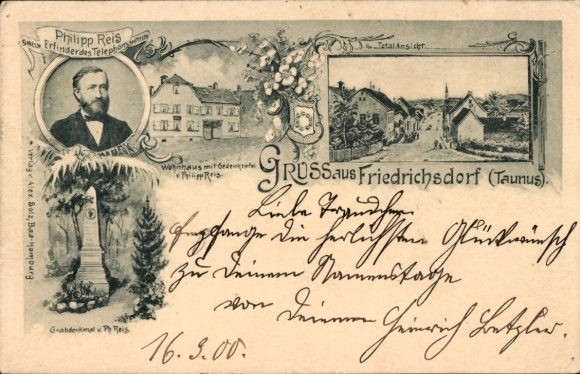 Philipp Reis
Erfinder des Telephons
Total Ansicht.
Wohnhaus mit Gedenktafel
v. Philipp Reis.
Gruss aus Friedrichsdorf (Taunus).
Verlag v. Alex Bolz, Bad-Homburg
Grabdenkmal v. Ph. Reis.
Liebe Traudchen
Empfange die herlichsten Glückwünsch
zu Deinem Namenstage
von Deinem Heinrich Betzler.
16. 3. 00.